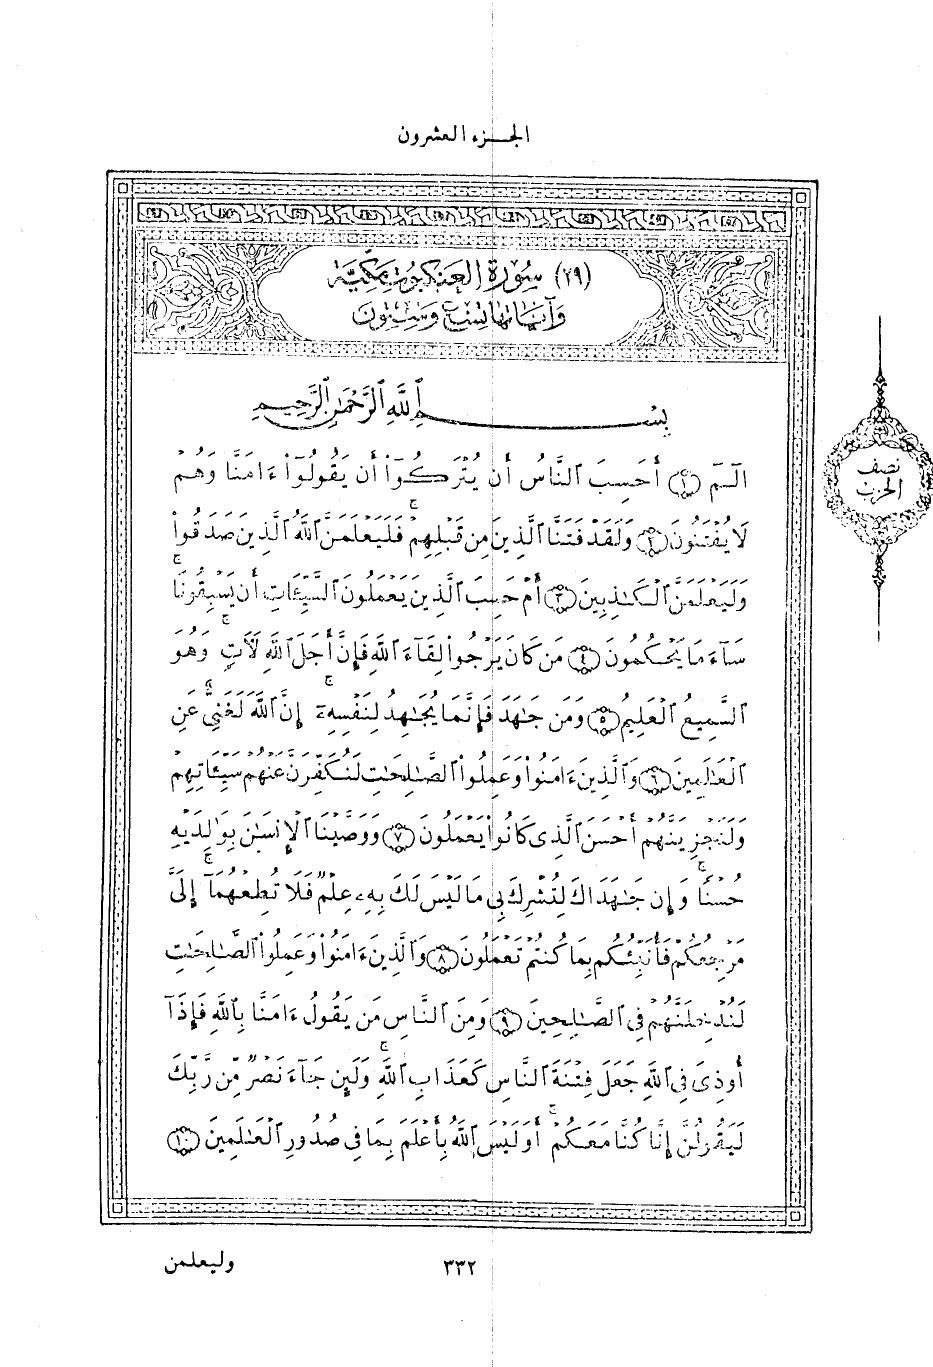 الجزء العشرون
(٢٩) سُورَةُ العَنكبُوتِ مَكِّيَّة
وَآيَاتُهَا تِسْعٌ وَسِتُّونَ
بِسْمِ ٱللَّهِ ٱلرَّحْمَٰنِ ٱلرَّحِيمِ
نصف
الحزب
الٓمٓ ﴿١﴾ أَحَسِبَ ٱلنَّاسُ أَن يُتْرَكُوٓا۟ أَن يَقُولُوٓا۟ ءَامَنَّا وَهُمْ
لَا يُفْتَنُونَ ﴿٢﴾ وَلَقَدْ فَتَنَّا ٱلَّذِينَ مِن قَبْلِهِمْ ۖ فَلَيَعْلَمَنَّ ٱللَّهُ ٱلَّذِينَ صَدَقُوا۟
وَلَيَعْلَمَنَّ ٱلْكَٰذِبِينَ ﴿٣﴾ أَمْ حَسِبَ ٱلَّذِينَ يَعْمَلُونَ ٱلسَّيِّـَٔاتِ أَن يَسْبِقُونَا ۚ
سَآءَ مَا يَحْكُمُونَ ﴿٤﴾ مَن كَانَ يَرْجُوا۟ لِقَآءَ ٱللَّهِ فَإِنَّ أَجَلَ ٱللَّهِ لَـَٔاتٍ ۚ وَهُوَ
ٱلسَّمِيعُ ٱلْعَلِيمُ ﴿٥﴾ وَمَن جَٰهَدَ فَإِنَّمَا يُجَٰهِدُ لِنَفْسِهِۦٓ ۚ إِنَّ ٱللَّهَ لَغَنِىٌّ عَنِ
ٱلْعَٰلَمِينَ ﴿٦﴾ وَٱلَّذِينَ ءَامَنُوا۟ وَعَمِلُوا۟ ٱلصَّٰلِحَٰتِ لَنُكَفِّرَنَّ عَنْهُمْ سَيِّـَٔاتِهِمْ
وَلَنَجْزِيَنَّهُمْ أَحْسَنَ ٱلَّذِى كَانُوا۟ يَعْمَلُونَ ﴿٧﴾ وَوَصَّيْنَا ٱلْإِنسَٰنَ بِوَٰلِدَيْهِ
حُسْنًا ۖ وَإِن جَٰهَدَاكَ لِتُشْرِكَ بِى مَا لَيْسَ لَكَ بِهِۦ عِلْمٌ فَلَا تُطِعْهُمَآ ۚ إِلَىَّ
مَرْجِعُكُمْ فَأُنَبِّئُكُم بِمَا كُنتُمْ تَعْمَلُونَ ﴿٨﴾ وَٱلَّذِينَ ءَامَنُوا۟ وَعَمِلُوا۟ ٱلصَّٰلِحَٰتِ
لَنُدْخِلَنَّهُمْ فِى ٱلصَّٰلِحِينَ ﴿٩﴾ وَمِنَ ٱلنَّاسِ مَن يَقُولُ ءَامَنَّا بِٱللَّهِ فَإِذَآ
أُوذِىَ فِى ٱللَّهِ جَعَلَ فِتْنَةَ ٱلنَّاسِ كَعَذَابِ ٱللَّهِ ۚ وَلَئِن جَآءَ نَصْرٌ مِّن رَّبِّكَ
لَيَقُولُنَّ إِنَّا كُنَّا مَعَكُمْ ۚ أَوَلَيْسَ ٱللَّهُ بِأَعْلَمَ بِمَا فِى صُدُورِ ٱلْعَٰلَمِينَ ﴿١٠﴾
٣٣٢
وليعلمن